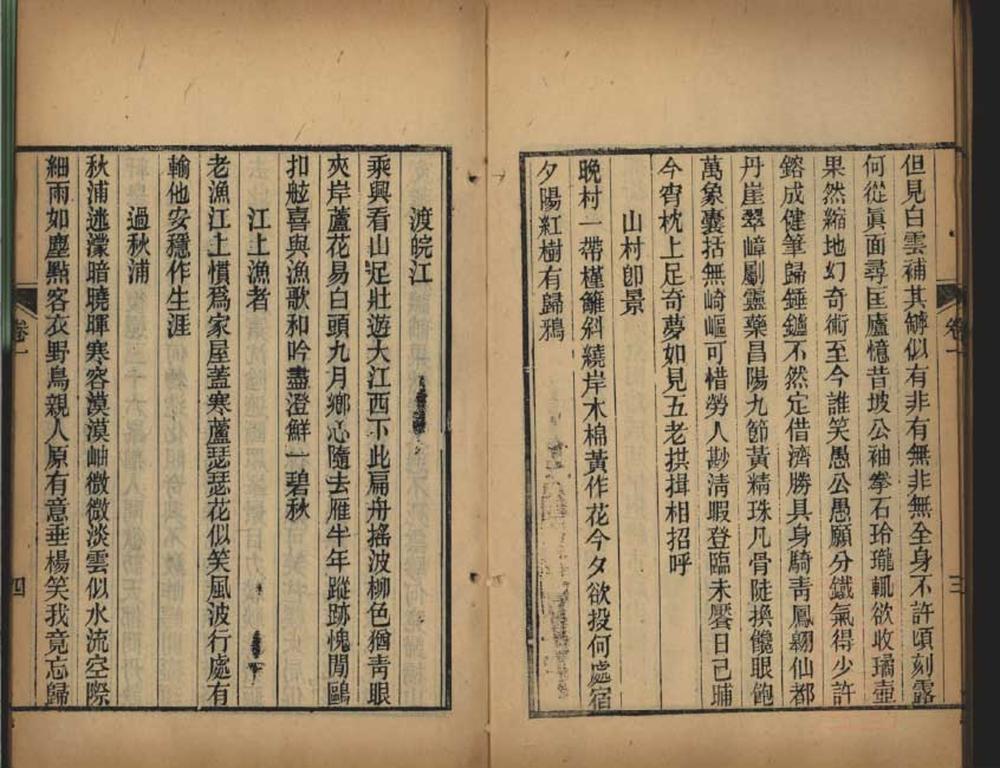 但見白雲補其罅似有非有無非無全身不許頃刻露
何從眞面尋匡廬憶昔坡公袖拳石玲瓏輒欲收璚壺
果然縮地幻奇術至今誰笑愚公愚願分鐵氣得少許
鎔成健筆歸錘鑪不然定借濟勝具身騎靑鳳翺仙都
丹崖翠嶂劚靈藥昌陽九節黃精珠凡骨陡換饞眼飽
萬象囊括無崎嶇可惜勞人尠清暇登臨未饜日已晡
今宵枕上足奇夢如見五老拱揖相招呼
山村卽景
晚村一帶槿籬斜繞岸木棉黃作花今夕欲投何處宿
夕陽紅樹有歸鴉
卷一
三
渡皖江
乘興看山足壯遊大江西下此扁舟搖波柳色猶靑眼
夾岸蘆花易白頭九月鄉心隨去雁半年蹤跡愧閒鷗
扣舷喜與漁歌和吟盡澄鮮一碧秋
江上漁者
老漁江上慣爲家屋蓋寒蘆瑟瑟花似笑風波行處有
輸他安穩作生涯
過秋浦
秋浦迷濛暗曉暉寒容漠漠岫微微淡雲似水流空際
細雨如塵點客衣野鳥親人原有意垂楊笑我竟忘歸
卷一
四